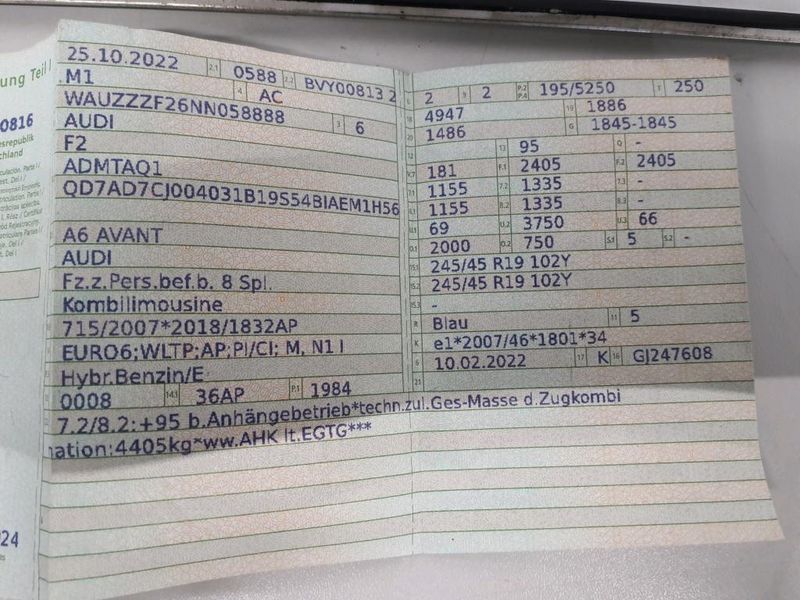 ung Teil I
0816
esrepublik
chland
24
25.10.2022 2.1 0588 2.2 BVY00813 2
.M1 4 AC
WAUZZZF26NN058888
AUDI 3 6
F2
ADMTAQ1
QD7AD7CJ004031B19S54BIAEM1H56
A6 AVANT
AUDI
Fz.z.Pers.bef.b. 8 Spl.
Kombilimousine
715/2007*2018/1832AP
EURO6;WLTP;AP;PI/CI; M, N1 I
Hybr.Benzin/E
0008 14.1 36AP P.1 1984
7.2/8.2:+95 b.Anhängebetrieb*techn.zul.Ges-Masse d.Zugkombi
nation:4405kg*ww.AHK lt.EGTG***
2 9 2 P.2 P.4 195/5250 T 250
18 4947 19 1886
20 1486 G 1845-1845
13 95 Q -
181 F.1 2405 F.2 2405
1155 7.2 1335 7.3 -
1155 8.2 1335 8.3 -
U.1 69 U.2 3750 U.3 66
2000 O.2 750 S.1 5 S.2 -
15.1 245/45 R19 102Y
15.2 245/45 R19 102Y
15.3 -
R Blau 11 5
K e1*2007/46*1801*34
6 10.02.2022 17 K 16 GJ247608
21